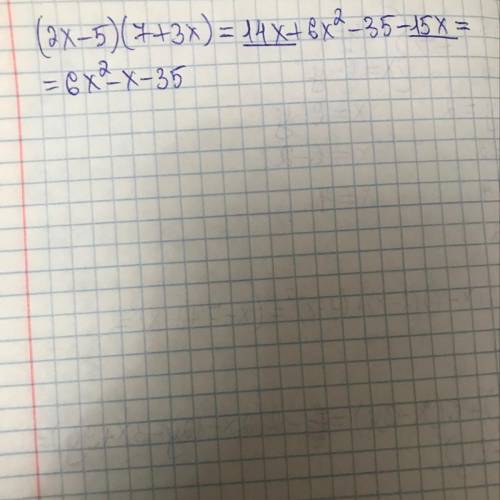 (2x-5)(7+3x)=14x+6x²-35-15x=
=6x²-x-35